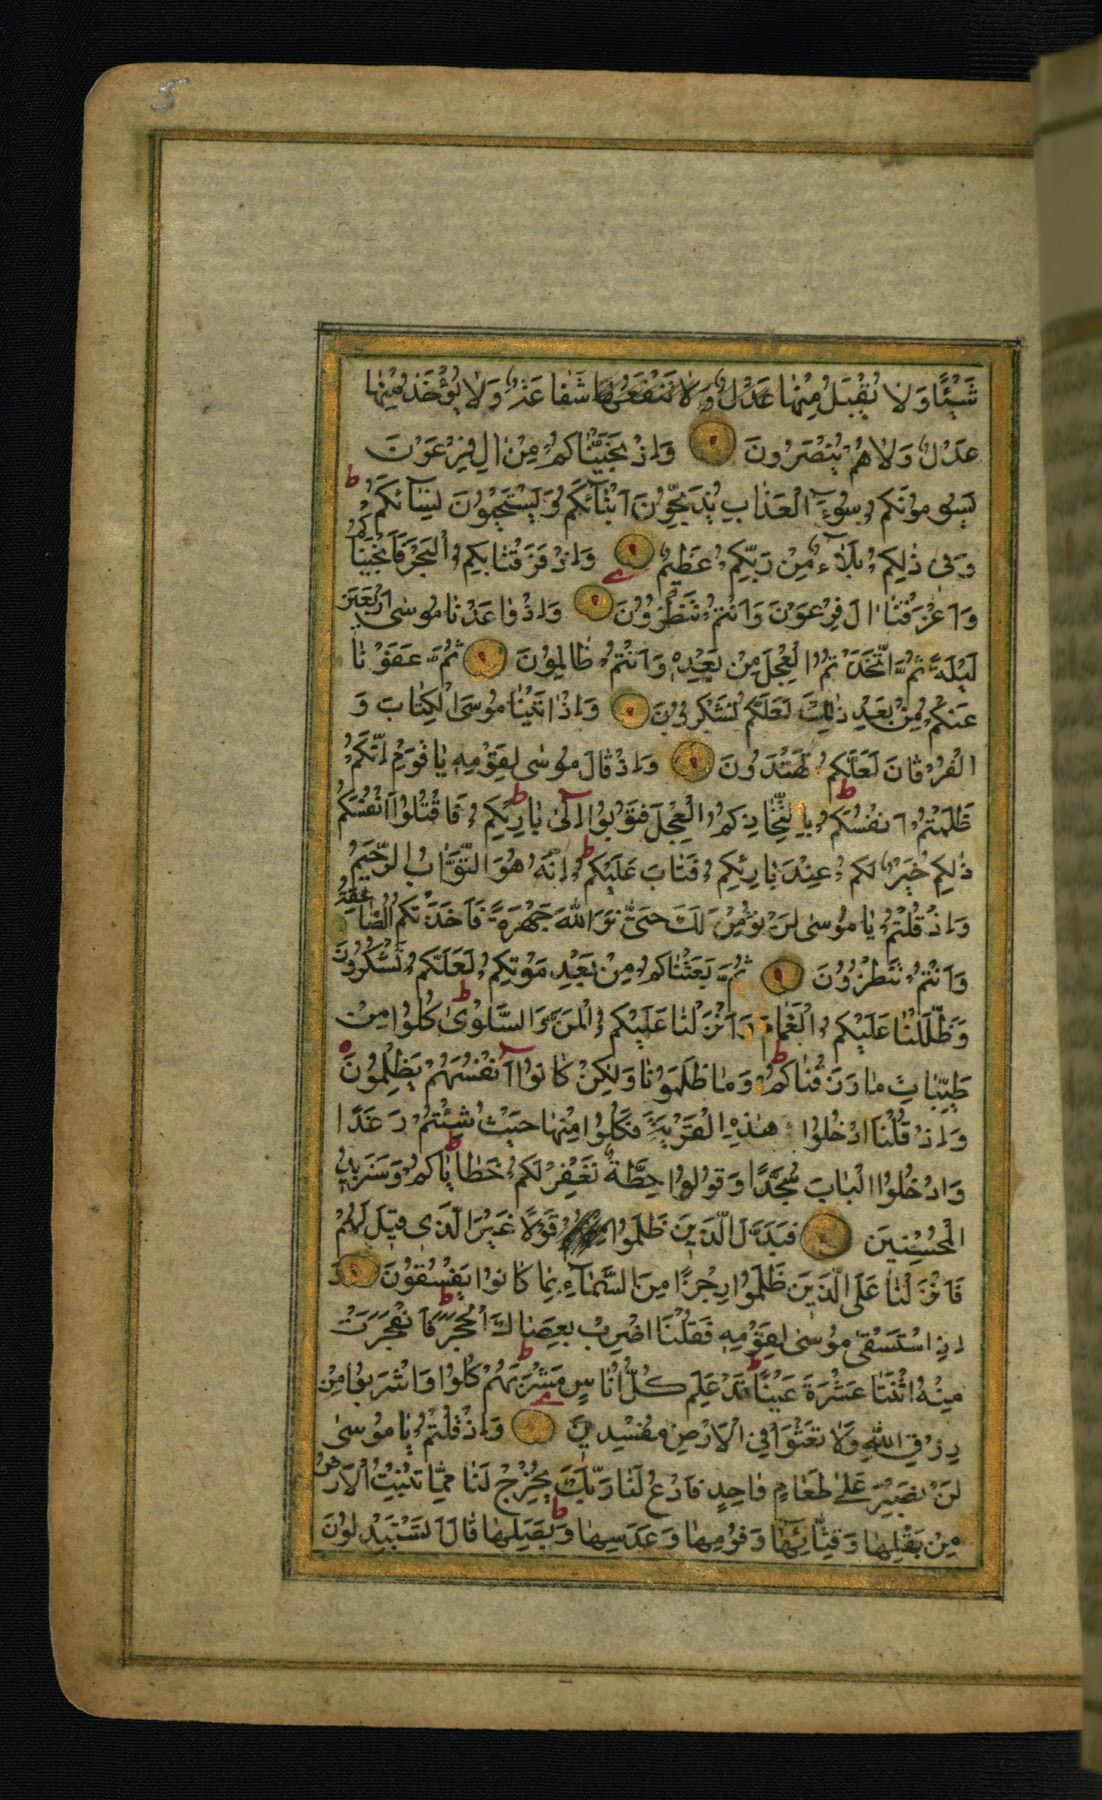 5
شَيْئًا وَلَا يُقْبَلُ مِنْهَا عَدْلٌ وَلَا تَنْفَعُهَا شَفَاعَةٌ وَلَا يُؤْخَذُ مِنْهَا
عَدْلٌ وَلَا هُمْ يُنْصَرُونَ وَاِذْ نَجَّيْنَاكُمْ مِنْ اٰلِ فِرْعَوْنَ
يَسُومُونَكُمْ سُوٓءَ الْعَذَابِ يُذَبِّحُونَ اَبْنَآئَكُمْ وَيَسْتَحْيُونَ نِسَآئَكُمْ ط
وَفِى ذٰلِكُمْ بَلَآءٌ مِنْ رَبِّكُمْ عَظِيمٌ وَاِذْ فَرَقْنَا بِكُمُ الْبَحْرَ فَاَنْجَيْنَاكُمْ
وَاَغْرَقْنَا اٰلَ فِرْعَوْنَ وَاَنْتُمْ تَنْظُرُونَ وَاِذْ وَاعَدْنَا مُوسٰى اَرْبَعِينَ
لَيْلَةً ثُمَّ اتَّخَذْتُمُ الْعِجْلَ مِنْ بَعْدِهِ وَاَنْتُمْ ظَالِمُونَ ثُمَّ عَفَوْنَا
عَنْكُمْ مِنْ بَعْدِ ذٰلِكَ لَعَلَّكُمْ تَشْكُرُونَ وَاِذْ اٰتَيْنَا مُوسَى الْكِتَابَ وَ
الْفُرْقَانَ لَعَلَّكُمْ تَهْتَدُونَ وَاِذْ قَالَ مُوسٰى لِقَوْمِهِ يَا قَوْمِ اِنَّكُمْ
ظَلَمْتُمْ اَنْفُسَكُمْ بِاتِّخَاذِكُمُ الْعِجْلَ فَتُوبُوا اِلٰى بَارِئِكُمْ فَاقْتُلُوا اَنْفُسَكُمْ
ذٰلِكُمْ خَيْرٌ لَكُمْ عِنْدَ بَارِئِكُمْ فَتَابَ عَلَيْكُمْ اِنَّهُ هُوَ التَّوَّابُ الرَّحِيمُ
وَاِذْ قُلْتُمْ يَا مُوسٰى لَنْ نُؤْمِنَ لَكَ حَتّٰى نَرَ اللّٰهَ جَهْرَةً فَاَخَذَتْكُمُ الصَّاعِقَةُ
وَاَنْتُمْ تَنْظُرُونَ ثُمَّ بَعَثْنَاكُمْ مِنْ بَعْدِ مَوْتِكُمْ لَعَلَّكُمْ تَشْكُرُونَ
وَظَلَّلْنَا عَلَيْكُمُ الْغَمَامَ وَاَنْزَلْنَا عَلَيْكُمُ الْمَنَّ وَالسَّلْوٰى كُلُوا مِنْ
طَيِّبَاتِ مَا رَزَقْنَاكُمْ وَمَا ظَلَمُونَا وَلٰكِنْ كَانُوا اَنْفُسَهُمْ يَظْلِمُونَ
وَاِذْ قُلْنَا ادْخُلُوا هٰذِهِ الْقَرْيَةَ فَكُلُوا مِنْهَا حَيْثُ شِئْتُمْ رَغَدًا
وَادْخُلُوا الْبَابَ سُجَّدًا وَقُولُوا حِطَّةٌ نَغْفِرْ لَكُمْ خَطَايَاكُمْ وَسَنَزِيدُ
الْمُحْسِنِينَ فَبَدَّلَ الَّذِينَ ظَلَمُوا قَوْلًا غَيْرَ الَّذِى قِيلَ لَهُمْ
فَاَنْزَلْنَا عَلَى الَّذِينَ ظَلَمُوا رِجْزًا مِنَ السَّمَآءِ بِمَا كَانُوا يَفْسُقُونَ وَ
اِذِ اسْتَسْقٰى مُوسٰى لِقَوْمِهِ فَقُلْنَا اضْرِبْ بِعَصَاكَ الْحَجَرَ فَانْفَجَرَتْ
مِنْهُ اثْنَتَا عَشْرَةَ عَيْنًا قَدْ عَلِمَ كُلُّ اُنَاسٍ مَشْرَبَهُمْ كُلُوا وَاشْرَبُوا مِنْ
رِزْقِ اللّٰهِ وَلَا تَعْثَوْا فِى الْاَرْضِ مُفْسِدِينَ وَاِذْ قُلْتُمْ يَا مُوسٰى
لَنْ نَصْبِرَ عَلٰى طَعَامٍ وَاحِدٍ فَادْعُ لَنَا رَبَّكَ يُخْرِجْ لَنَا مِمَّا تُنْبِتُ الْاَرْضُ
مِنْ بَقْلِهَا وَقِثَّآئِهَا وَفُومِهَا وَعَدَسِهَا وَبَصَلِهَا قَالَ اَتَسْتَبْدِلُونَ